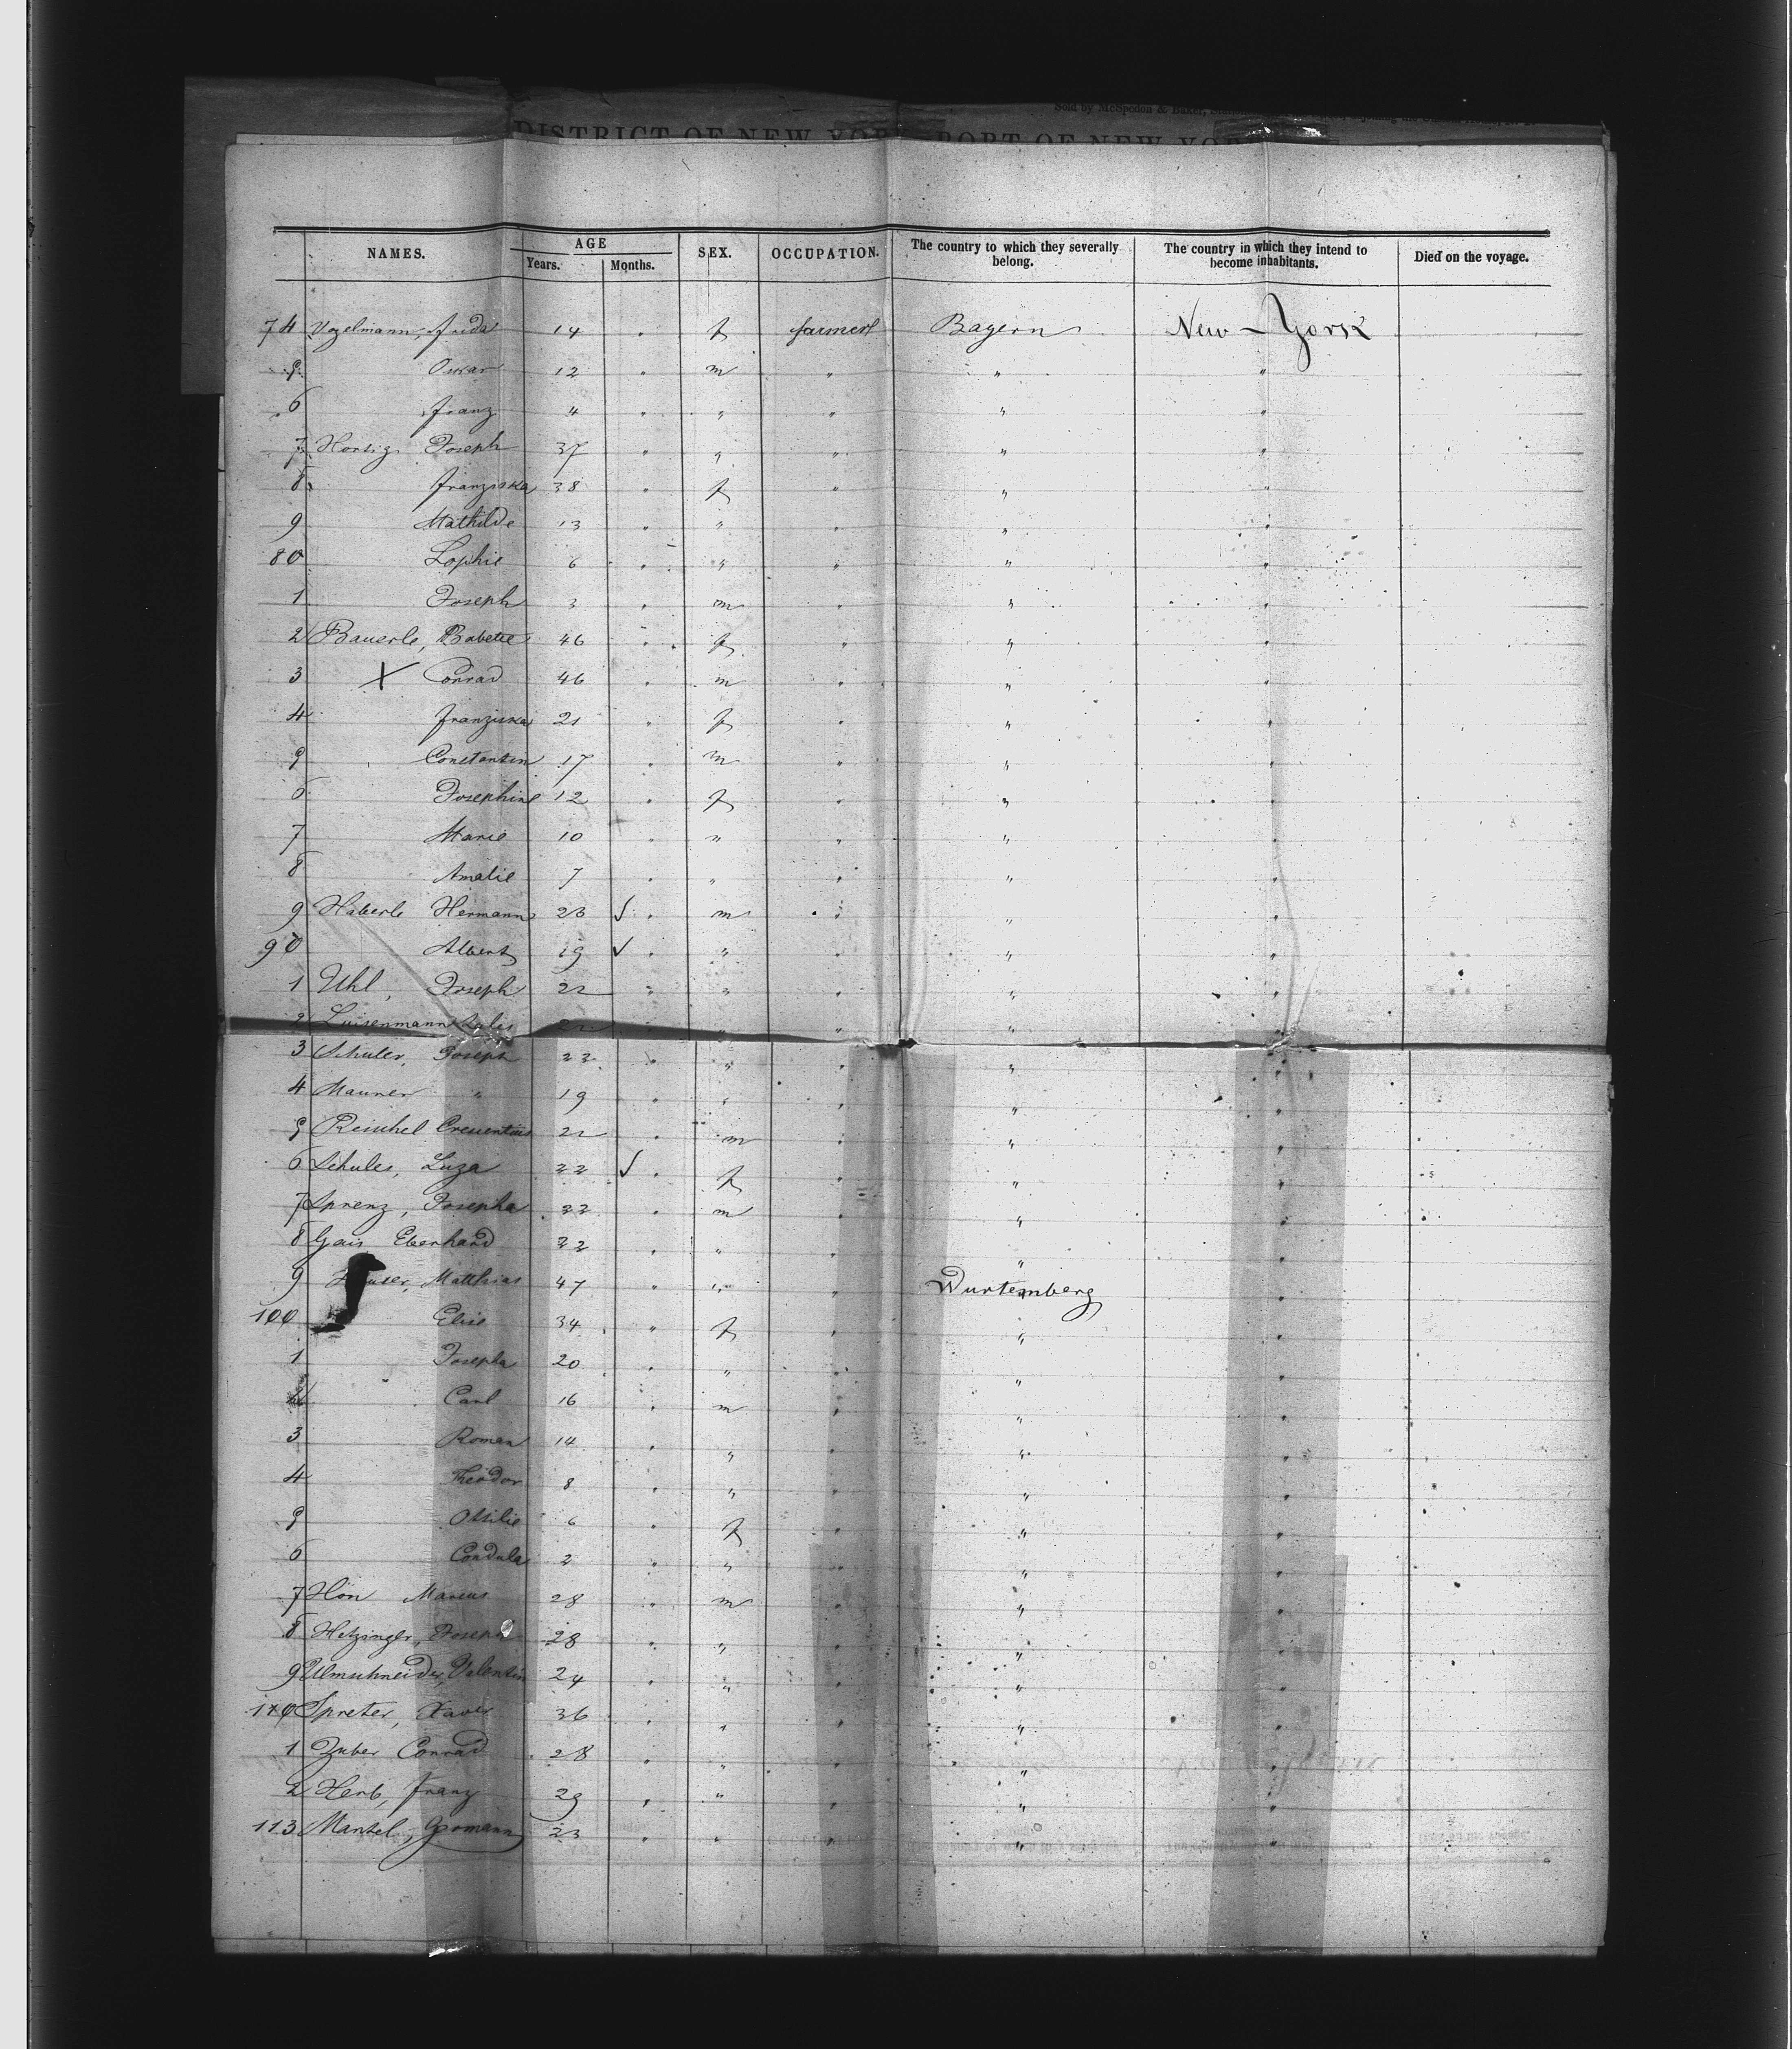 DISTRICT OF NEW YORK PORT OF NEW YORK
NAMES. AGE Years. Months. SEX. OCCUPATION. The country to which they severally belong. The country in which they intend to become inhabitants. Died on the voyage.
74 Vogelmann, Frida 14 " f farmer Bayern New-York
5 Oskar 12 " m " " "
6 Franz 4 " " " " "
7 Joseph 37 " " " " "
8 Franziska 38 " f " " "
9 Mathilde 13 " " " " "
80 Sophie 6 " " " " "
1 Joseph 3 " m " " "
2 Bauerle, Babette 46 " f " " "
3 X Conrad 46 " m " " "
4 Franziska 21 " f " " "
5 Constantin 17 " m " " "
6 Josephine 12 " f " " "
7 Marie 10 " " " " "
8 Amalie 7 " " " " "
9 Haberle Hermann 26 ✓ " m " " "
90 Albert 19 ✓ " " " " "
1 Uhl, Joseph 22 " " " " "
2 Luisenmann " " " " "
3 Schuler, Joseph 22 " " " " "
4 Maurer " 19 " " " " "
5 22 " m " " "
6 Schuler, Luza 22 ✓ " f " " "
7 Sprenz, Josepha 22 " m " " "
8 Gais Eberhard 32 " " " " "
9 Matthias 47 " " " Wurtemberg "
100 Elise 34 " f " " "
1 Josepha 20 " " " " "
2 Carl 16 " m " " "
3 Roman 14 " " " " "
4 Theodor 8 " " " " "
5 Ottilie 6 " f " " "
6 Cordula 2 " " " " "
7 Hön Marcus 28 " m " " "
8 Hetzingler, Joseph 28 " " " " "
9 Ulmschneider, Valentin 24 " " " " "
110 Spreter, Xaver 36 " " " " "
1 Zuber Conrad 28 " " " " "
2 Herb, Franz 29 " " " " "
113 Mantel, Germann 23 " " " " "